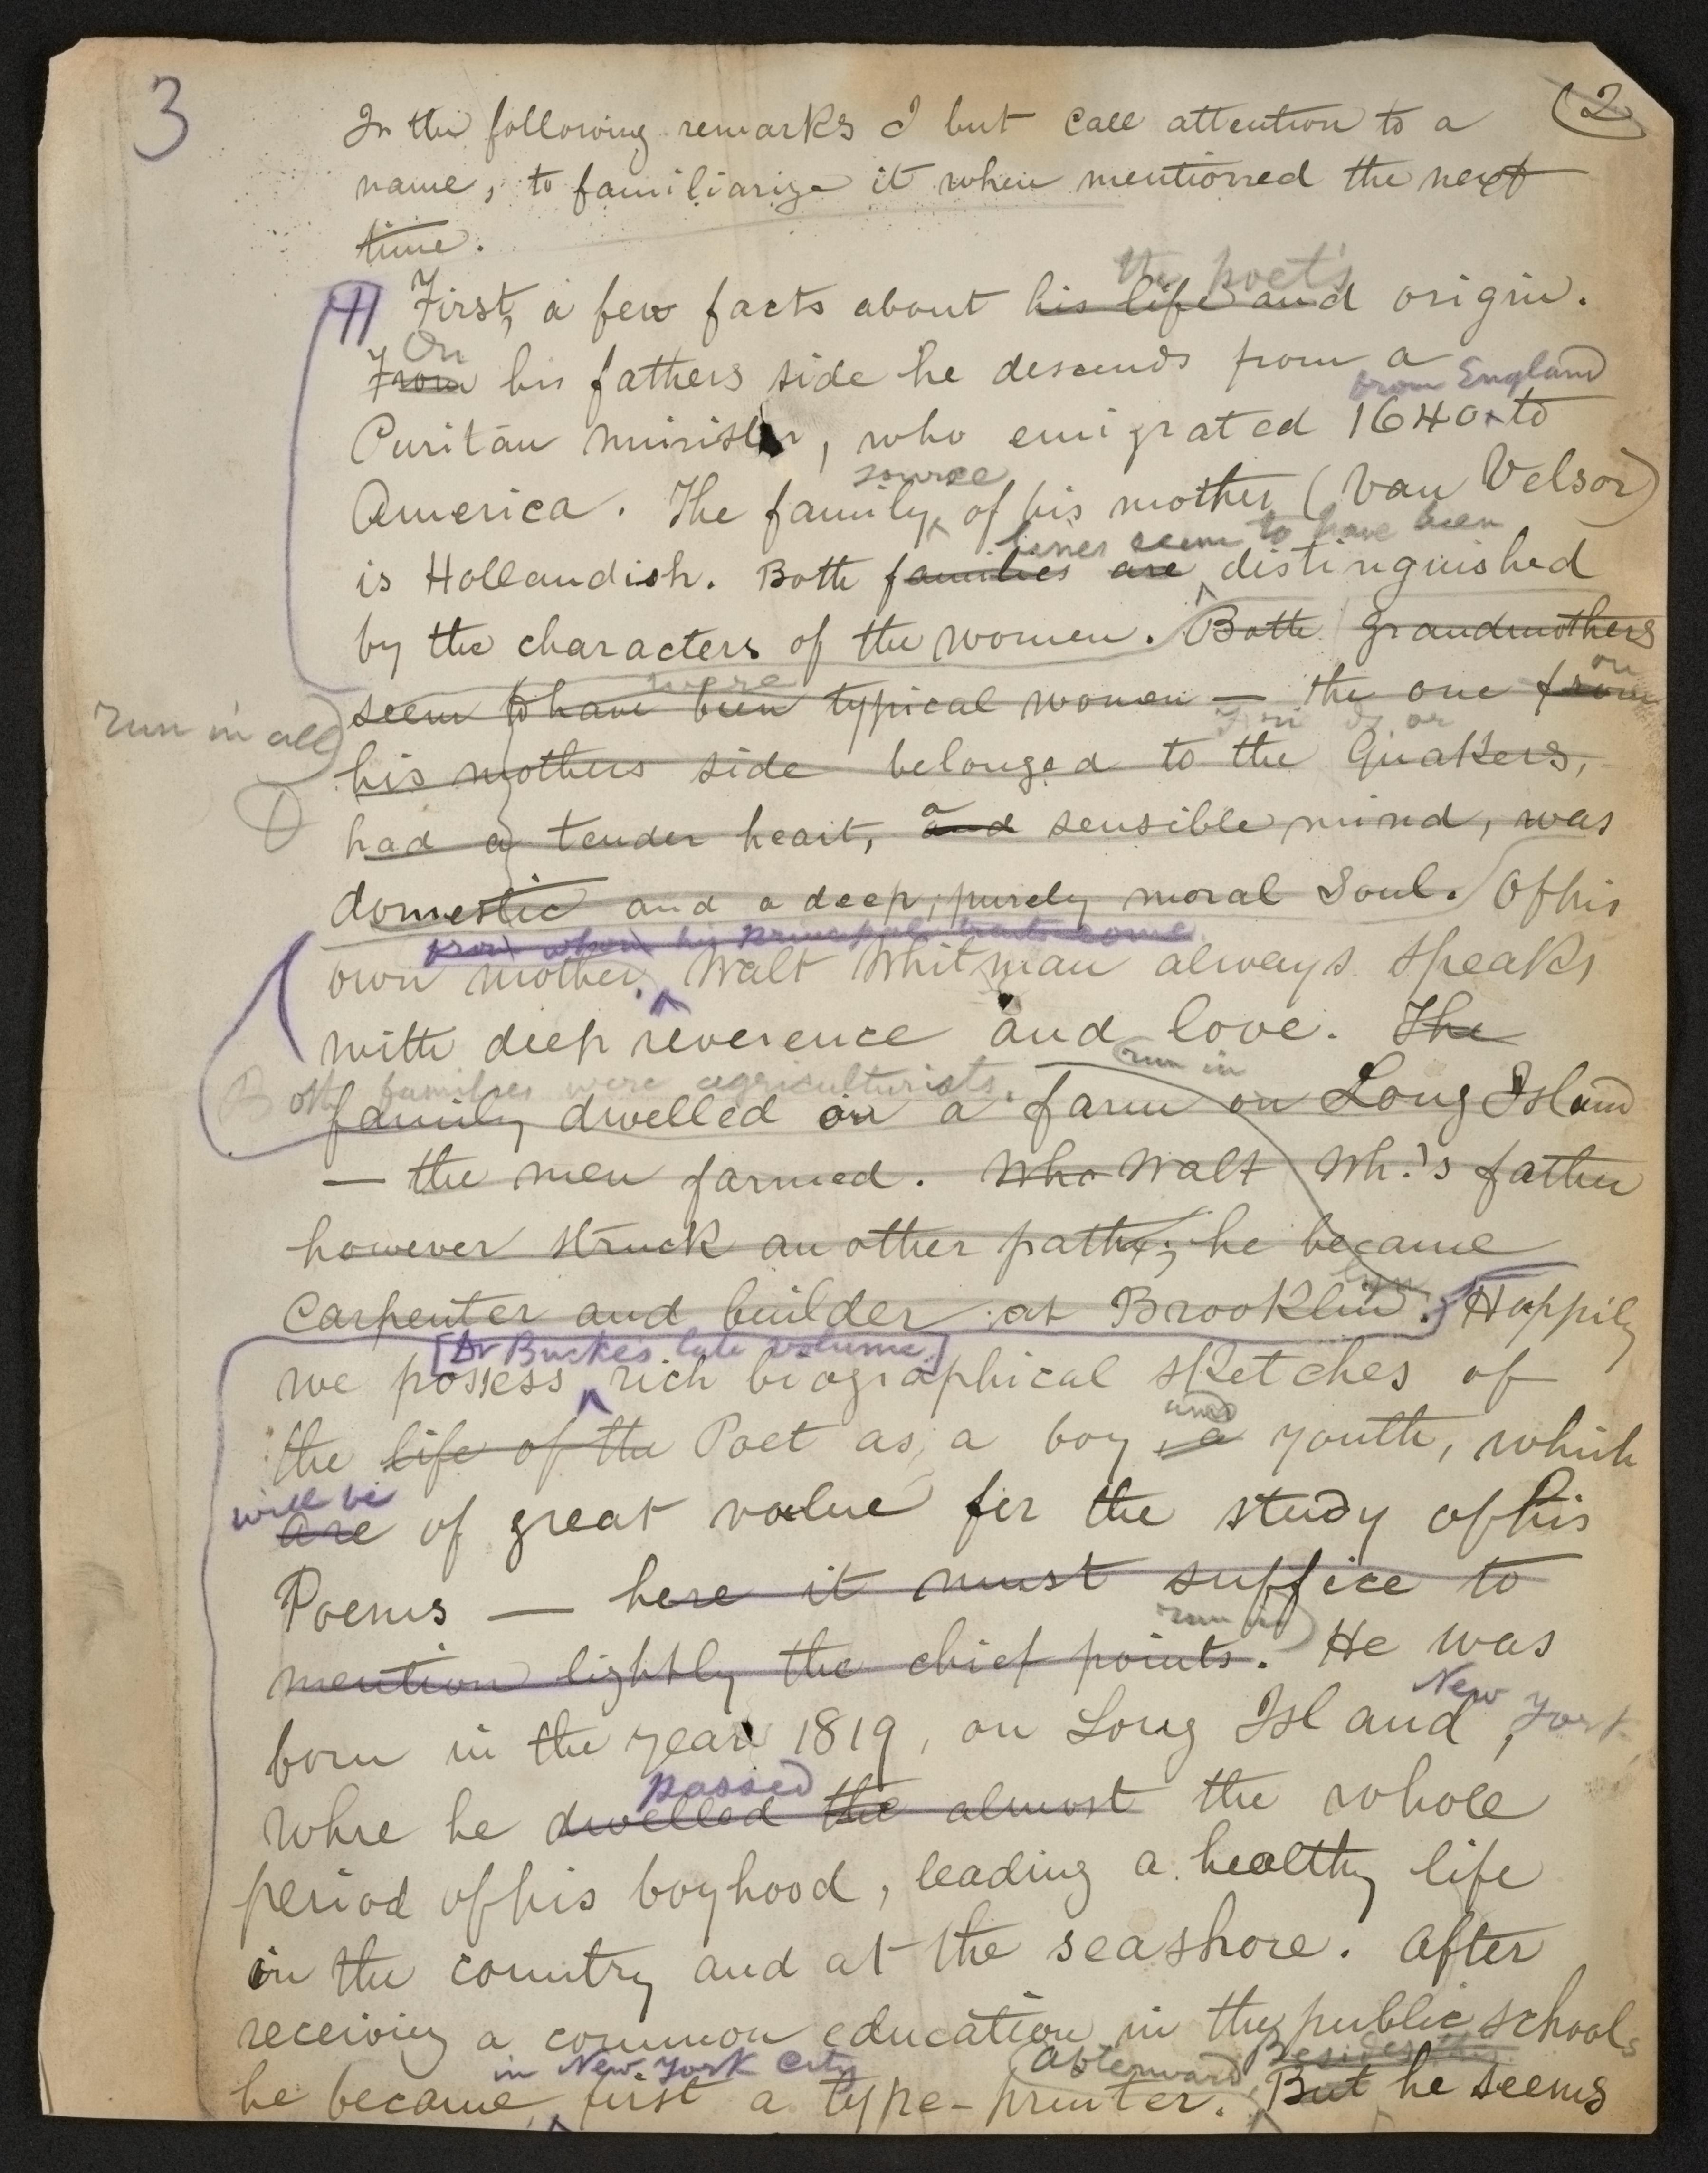 3
(2)
In the following remarks I but call attention to a
name, to familiarize it when mentioned the next
time.
the poet's
First, a few facts about his life and origin.
On
From his fathers side he descends from a
from England
Puritan minister, who emigrated 1640 ^ to
source
America. The family ^ of his mother (Van Velsor)
lines seem to have been
is Hollandish. Both families are ^ distinguished
by the characters of the women. Both grandmothers
were
on
seem to have been typical women — the one from
run in all
Friends or
his mothers side belonged to the Quakers,
a
had a tender heart, and sensible mind, was
domestic and a deep, purely moral Soul. Of his
from whom his principal traits come
own mother, ^ Walt Whitman always speaks
with deep reverence and love. The
run in
Both families were agriculturists.
family dwelled on a farm on Long Island
— the men farmed. Who Walt Wh.'s father
however struck another path; he became
lyn
Carpenter and builder at Brooklin. Happily
[Dr Bucke's late volume.]
we possess ^ rich biographical sketches of
and
the life of the Poet as a boy, a youth, which
will be
are of great value for the study of his
Poems — here it must suffice to
run in
mention lightly the chief points. He was
New York
born in the year 1819, on Long Island,
passed
whre he dwelled the almost the whole
period of his boyhood, leading a healthy life
in the country and at the seashore. After
receiving a common education in the public schools
in New York City
Afterward
Besides this
he became ^ first a type-printer. But he seems